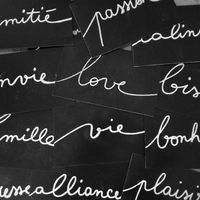 mitié passion
or alin
nvie love bis
mille vie bonh
esse alliance plaisi